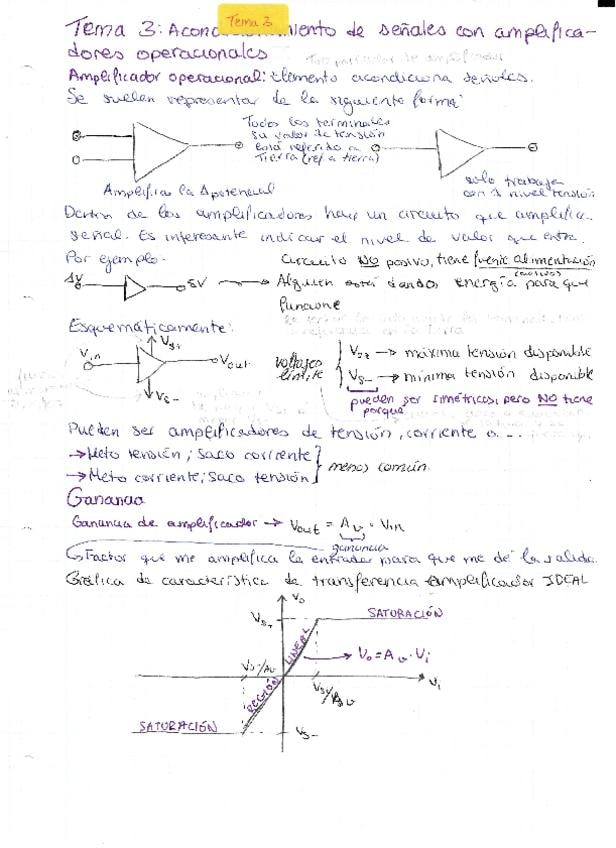 Tema 3: Acondicionamiento de señales con amplifica-
Tema 3
dores operacionales
Amplificador operacional: Elemento acondiciona señales.
Se suelen representar de la siguiente forma:
Todos los terminales
su valor de tensión
está referido a
Tierra (ref a tierra)
Amplifica la Δpotencial
solo trabaja
con 1 nivel tensión
Dentro de los amplificadores hay un circuito que amplifica
señal. Es interesante indicar el nivel de valor que entra.
Por ejemplo.
Circuito NO pasivo, tiene fuente alimentación
(activos)
5V
Alguien está dando energía para que
funcione
Esquemáticamente:
Vs+
Vin
Vout
Vs-
voltajes
límite
Vs+ → máxima tensión disponible
Vs- → mínima tensión disponible
pueden ser simétricos, pero NO tiene
porqué
Pueden ser amplificadores de tensión, corriente o ...
→ Meto tensión; saco corriente
→ Meto corriente; saco tensión
menos común
Ganancia
Ganancia de amplificador → Vout = Av · Vin
ganancia
Factor que me amplifica la entrada para que me dé la salida.
Gráfica de característica de transferencia amplificador IDEAL
Vo
Vs+
SATURACIÓN
REGIÓN LINEAL
→ Vo = Av · Vi
Vs/Av
Vi
Vs/Av
SATURACIÓN
Vs-